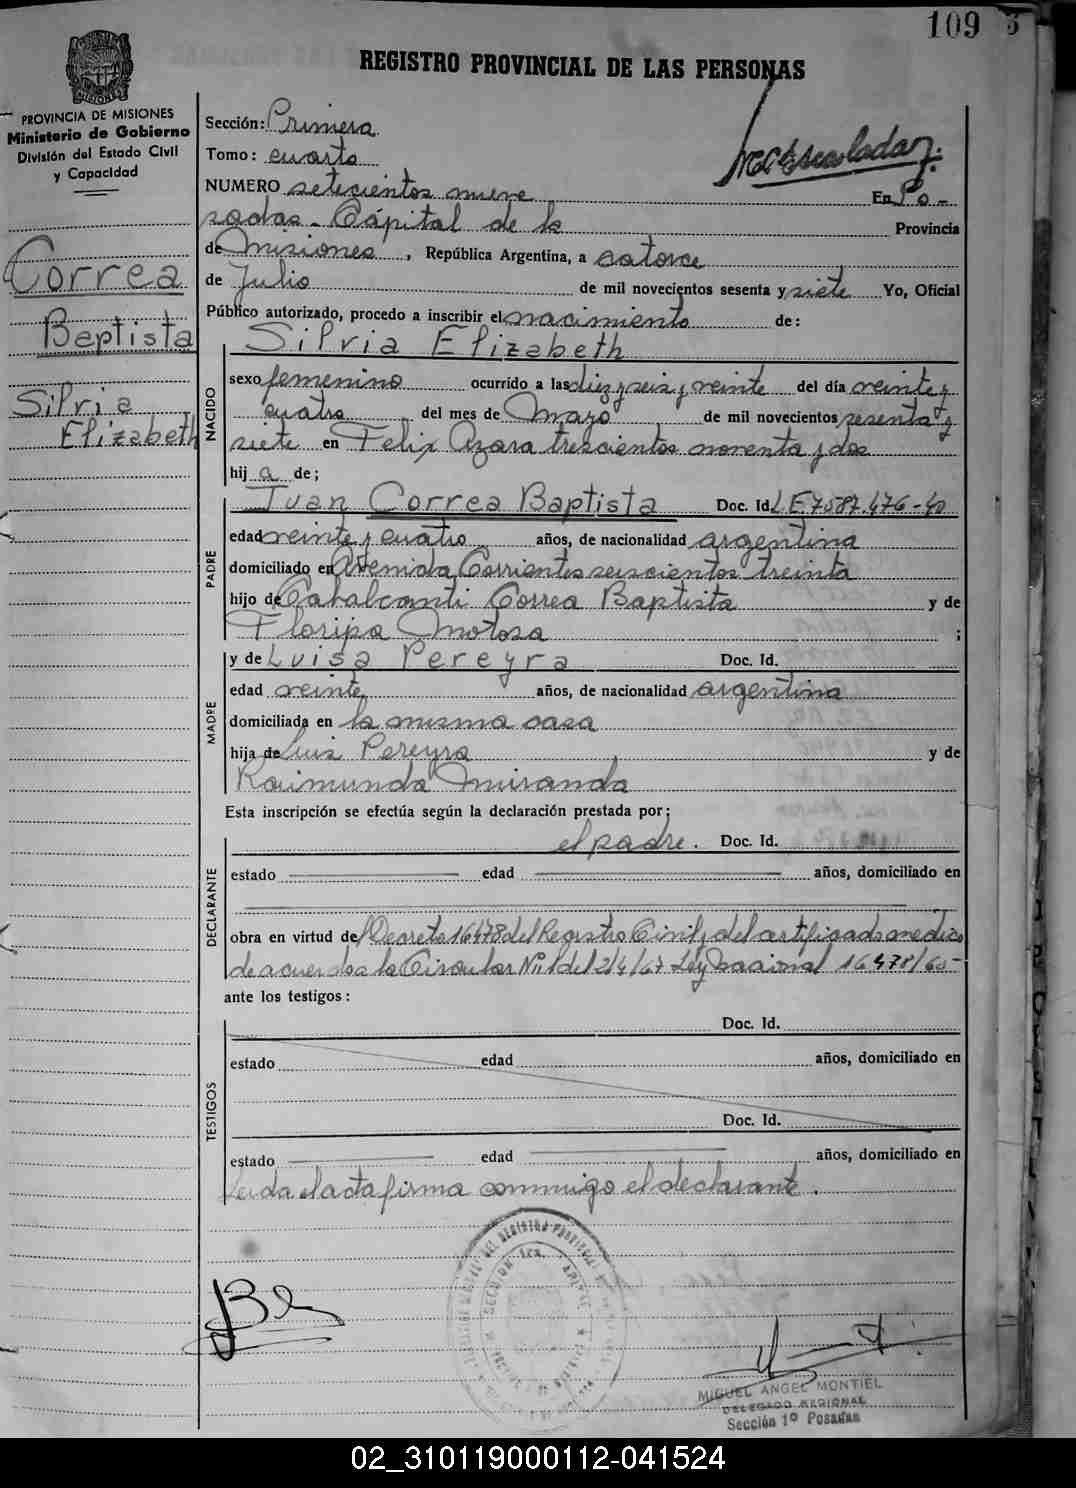 109
3
REGISTRO PROVINCIAL DE LAS PERSONAS
MISIONES
PROVINCIA DE MISIONES
Ministerio de Gobierno
División del Estado Civil
y Capacidad
Correa
Baptista
Silvia
Elizabeth
Sección: Primera
Tomo: cuarto
NUMERO setecientos nueve En Po-
sadas - Capital de la Provincia
de Misiones, República Argentina, a catorce
de Julio de mil novecientos sesenta y siete Yo, Oficial
Público autorizado, procedo a inscribir el nacimiento de:
NACIDO
Silvia Elizabeth
sexo femenino ocurrido a las diez y seis y veinte del día veinte y
cuatro del mes de Mayo de mil novecientos sesenta y
siete en Felix Azara trescientos noventa y dos
hij a de;
PADRE
Juan Correa Baptista Doc. Id. L.E 7587.476-
edad veinte y cuatro años, de nacionalidad argentina
domiciliado en Avenida Corrientes seiscientos treinta
hijo de Cavalcanti Correa Baptista y de
Floripa Motosa ;
MADRE
y de Luisa Pereyra Doc. Id.
edad veinte años, de nacionalidad argentina
domiciliada en la misma casa
hija de Luis Pereyra y de
Raimunda Miranda
Esta inscripción se efectúa según la declaración prestada por;
DECLARANTE
el padre. Doc. Id.
estado edad años, domiciliado en
obra en virtud de Decreto 16478 del Registro Civil y del certificado médico
de acuerdo a la Circular Nº 11 del 2/4/67 Ley Nacional 16478/65-
ante los testigos:
TESTIGOS
Doc. Id.
estado edad años, domiciliado en
Doc. Id.
estado edad años, domiciliado en
Leida el acta firma conmigo el declarante.
MIGUEL ANGEL MONTIEL
DELEGADO REGIONAL
Sección 1º Posadas
02_310119000112-041524